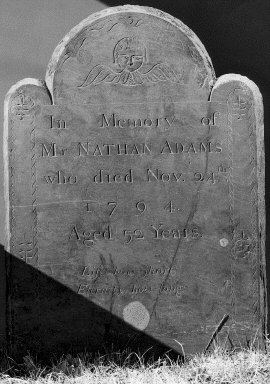 In Memory of
Mr. NATHAN ADAMS
who died Nov. 24th
1794.
Aged 52 Years.